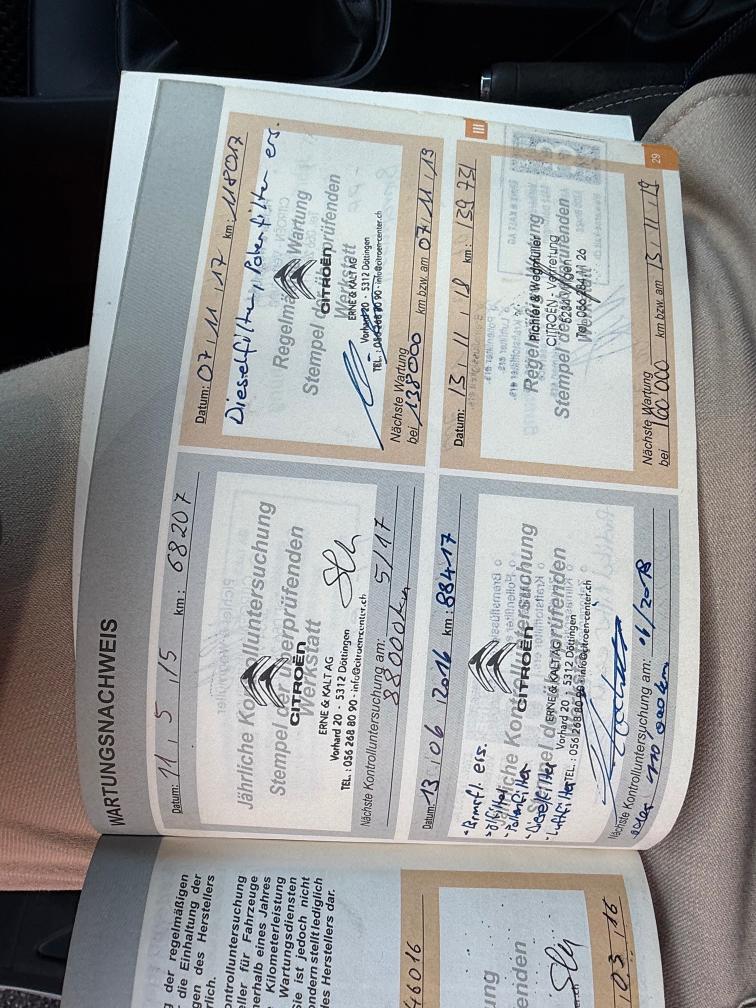 WARTUNGSNACHWEIS
Datum: 11 . 5 . 15 km: 68207
Jährliche Kontrolluntersuchung
Stempel der überprüfenden
Werkstatt
CITROËN
ERNE & KALT AG
Vorhard 20 - 5312 Döttingen
TEL.: 056 268 80 90 - info@citroen-center.ch
Nächste Kontrolluntersuchung am: 5/17
88000km
Datum: 07 . 11 . 17 km: 118017
Dieselfilter, Pollenfilter ers.
Regelmäßige Wartung
Stempel der überprüfenden
Werkstatt
CITROËN
ERNE & KALT AG
Vorhard 20 - 5312 Döttingen
TEL.: 056 268 80 90 - info@citroen-center.ch
Nächste Wartung
bei 138000 km bzw. am 07 . 11 . 19
Datum 13 . 06 . 2016 km: 88417
- Bremsfl. ers.
- Ölfilter
- Pollenfilter
- Dieselfilter
- Luftfilter
Jährliche Kontrolluntersuchung
Stempel der überprüfenden
CITROËN
ERNE & KALT AG
Vorhard 20 - 5312 Döttingen
TEL.: 056 268 80 90 - info@citroen-center.ch
Nächste Kontrolluntersuchung am:
oder 110 000 km
III
Datum: 15 . 11 . 18 km: 139 731
Regelmäßige Wartung
Stempel der überprüfenden
Werkstatt
CITROËN - Vertretung
Nächste Wartung
bei 160 000 km bzw. am 15 . 11 . 19
29
g der regelmäßigen
die Einhaltung der
gen des Herstellers
rlich.
ontrolluntersuchung
eller für Fahrzeuge
nerhalb eines Jahres
Kilometerleistung
Wartungsdiensten
ie ist jedoch nicht
ondern stellt lediglich
es Herstellers dar.
46016
ung
enden
03 . 16